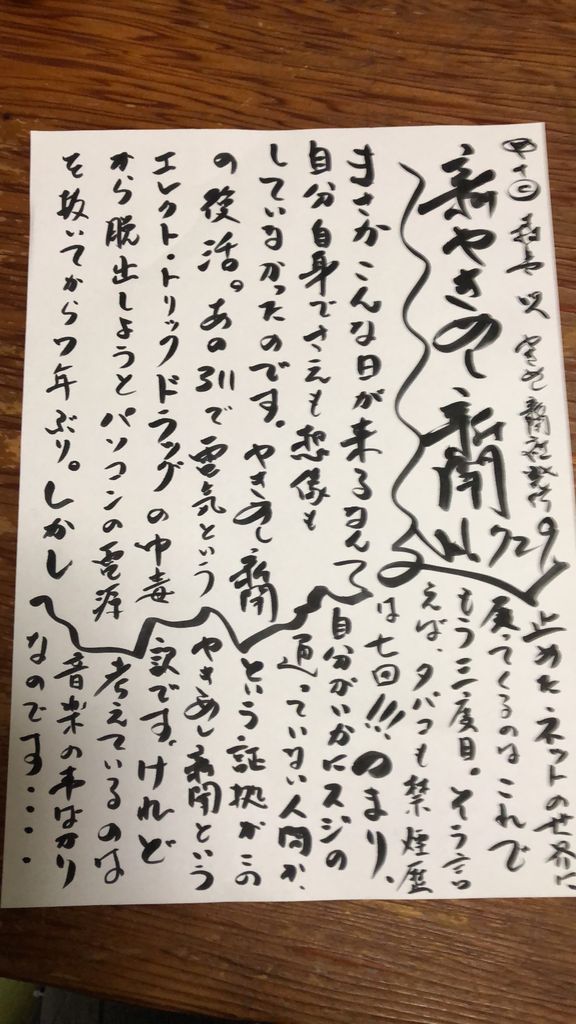 新やきめし新聞
H.729
まさかこんな日が来るなんて
自分自身でさえも想像も
していなかったのです。やきめし新聞
の復活。あの311で電気という
エレクト・トリックドラッグの中毒
から脱出しようとパソコンの電源
を抜いてから7年ぶり。しかし
止めたネットの世界に
戻ってくるのはこれで
もう三度目。そう言
えば、タバコも禁煙歴
は七回!!!つまり、
自分がいかにスジの
通っていない人間か、
という証拠がこの
やきめし新聞という
訳です。けれど
考えているのは
音楽の事ばかり
なのです・・・・